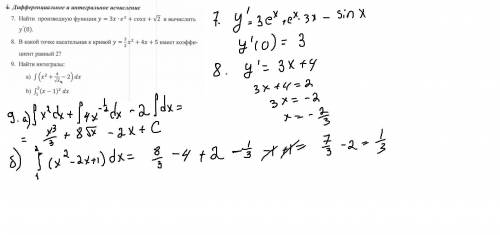 4. Дифференциальное и интегральное исчисление
7. Найти производную функции y = 3x · eˣ + cosx + √2 и вычислить
y′(0).
8. В какой точке касательная к кривой y = 3/2 x² + 4x + 5 имеет коэффи-
циент равный 2?
9. Найти интегралы:
a) ∫(x² + 4/√x − 2) dx
b) ∫₁²(x − 1)² dx
7. y′ = 3eˣ + eˣ · 3x − sin x
y′(0) = 3
8. y′ = 3x + 4
3x + 4 = 2
3x = −2
x = − 2/3
9. а) ∫x² dx + ∫4x^(−1/2) dx − 2∫dx =
= x³/3 + 8√x − 2x + C
б) ∫₁² (x² − 2x + 1) dx = 8/3 − 4 + 2 − 1/3 = 7/3 − 2 = 1/3